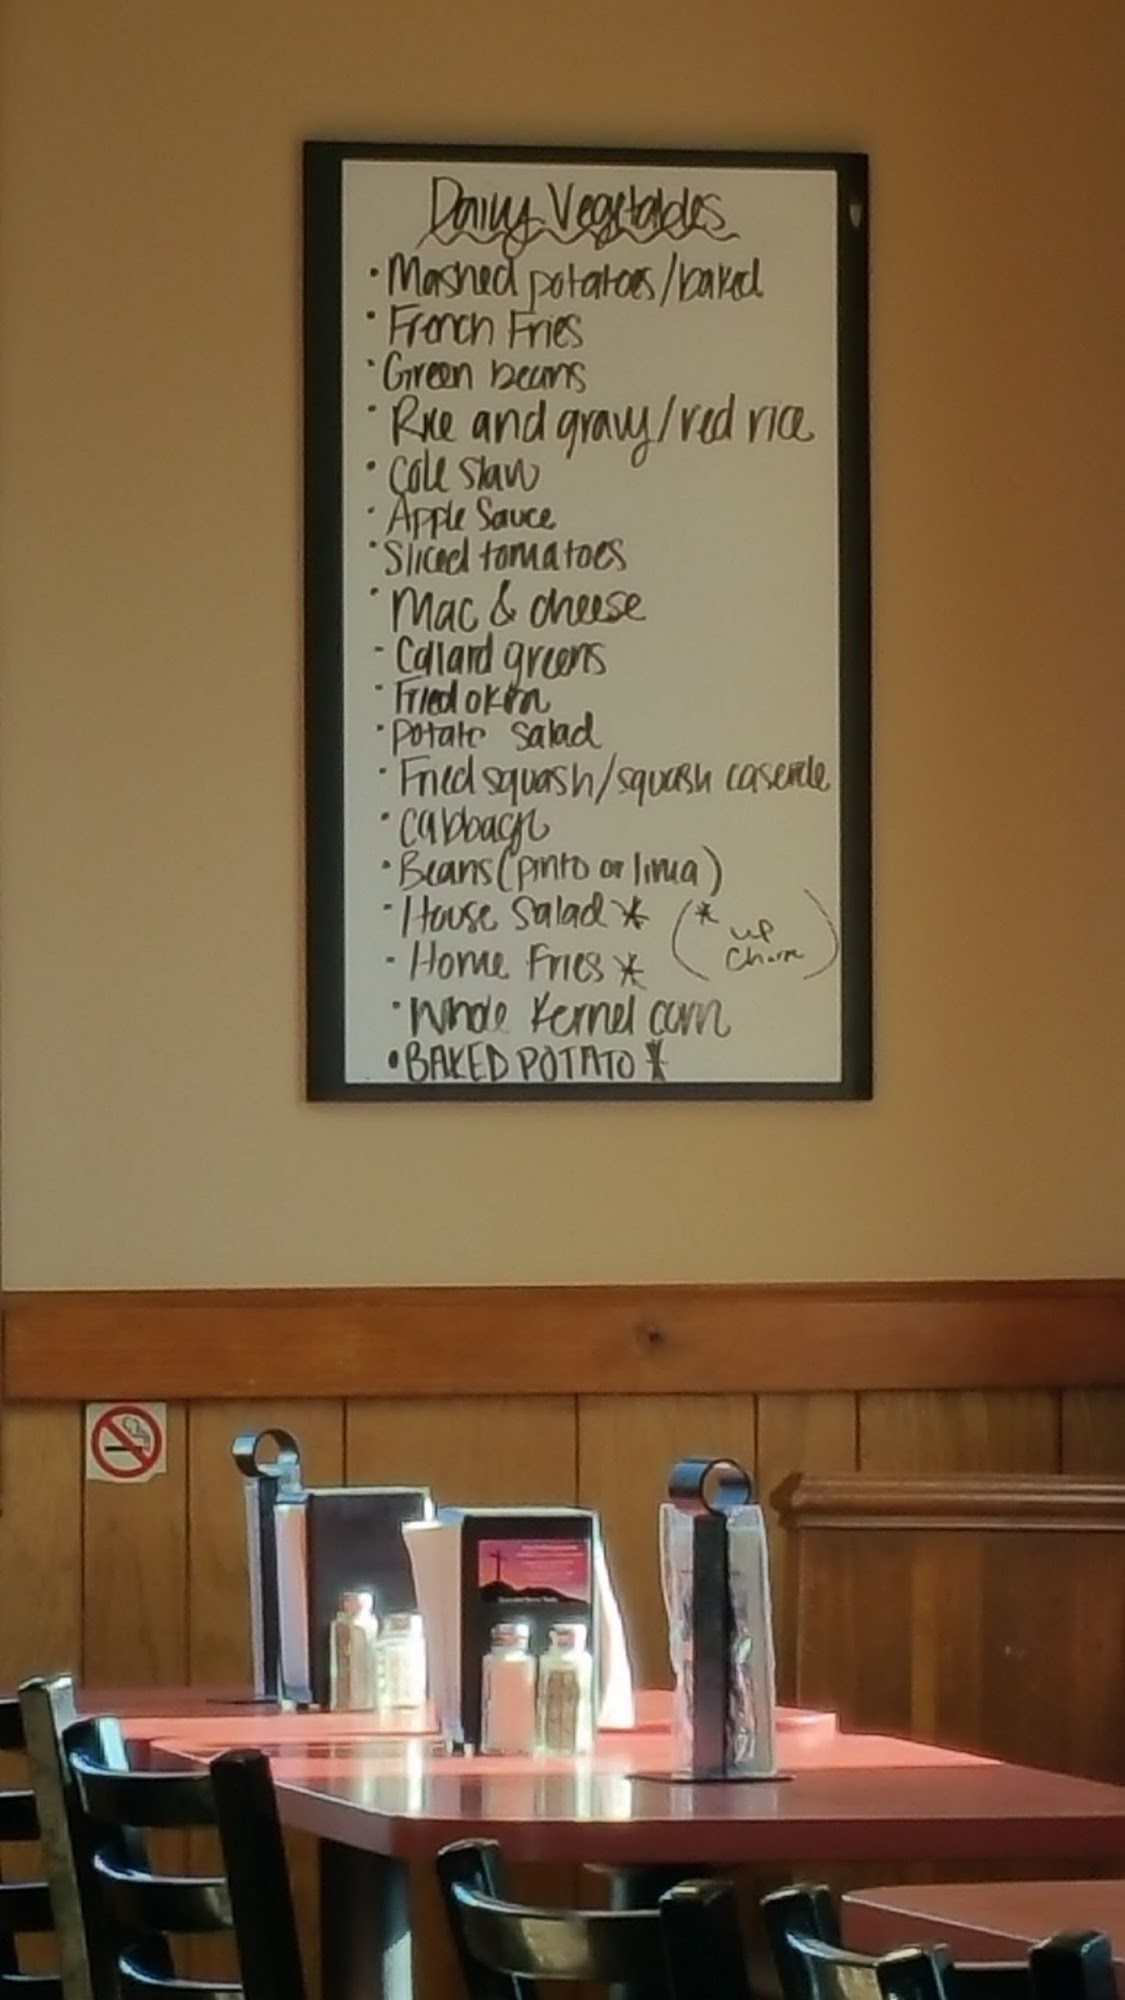 Daily Vegetables
• Mashed potatoes/baked
• French Fries
• Green beans
• Rice and gravy/red rice
• Cole slaw
• Apple Sauce
• Sliced tomatoes
• Mac & cheese
- Collard greens
• Fried okra
• Potato salad
• Fried squash/squash casserole
• Cabbage
• Beans (pinto or lima)
- House Salad * (* up
charge)
- Home Fries *
• Whole Kernel corn
• BAKED POTATO *